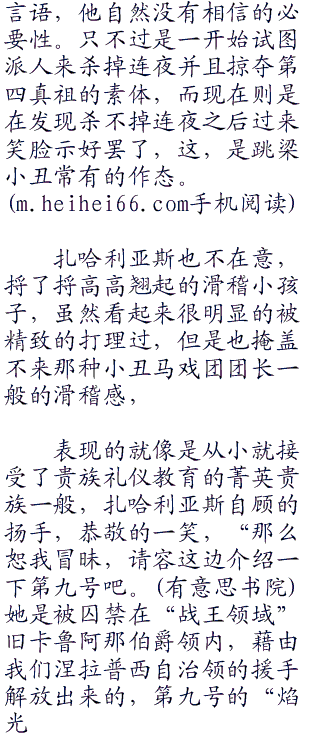 言语，他自然没有相信的必
要性。只不过是一开始试图
派人来杀掉连夜并且掠夺第
四真祖的素体，而现在则是
在发现杀不掉连夜之后过来
笑脸示好罢了，这，是跳梁
小丑常有的作态。
(m.heihei66.com手机阅读)
扎哈利亚斯也不在意，
捋了捋高高翘起的滑稽小孩
子，虽然看起来很明显的被
精致的打理过，但是也掩盖
不来那种小丑马戏团团长一
般的滑稽感，
表现的就像是从小就接
受了贵族礼仪教育的菁英贵
族一般，扎哈利亚斯自顾的
扬手，恭敬的一笑，“那么
恕我冒昧，请容这边介绍一
下第九号吧。(有意思书院)
她是被囚禁在“战王领域”
旧卡鲁阿那伯爵领内，藉由
我们涅拉普西自治领的援手
解放出来的，第九号的“焰
光